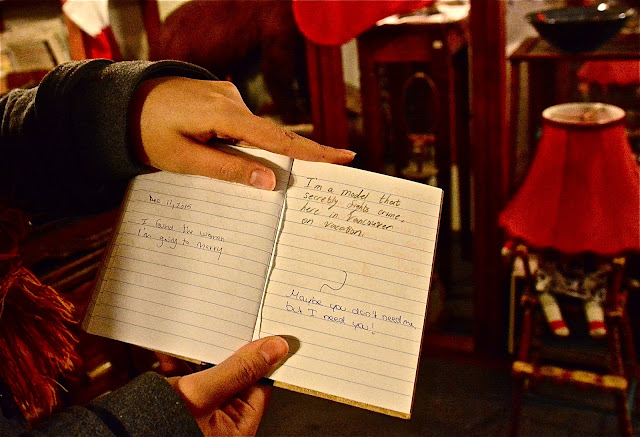 Dec 17, 2015
I found the woman
I'm going to marry
I'm a model that
secretly fights crime,
here in Vancouver
on vacation.
Maybe you don't need me,
but I need you!